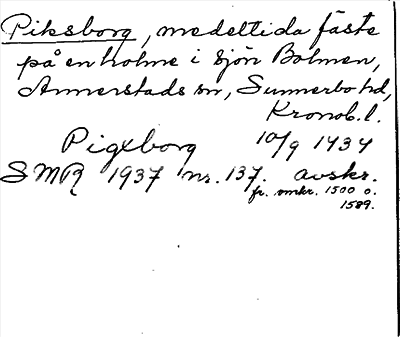 Piksborg, medeltida fäste
på en holme i sjön Bolmen,
Annerstads sn, Sunnerbo hd,
Kronob. l.
Pigxborg 10/9 1434
SMR 1937 nr. 137. avskr.
fr. omkr. 1500 o.
1589.